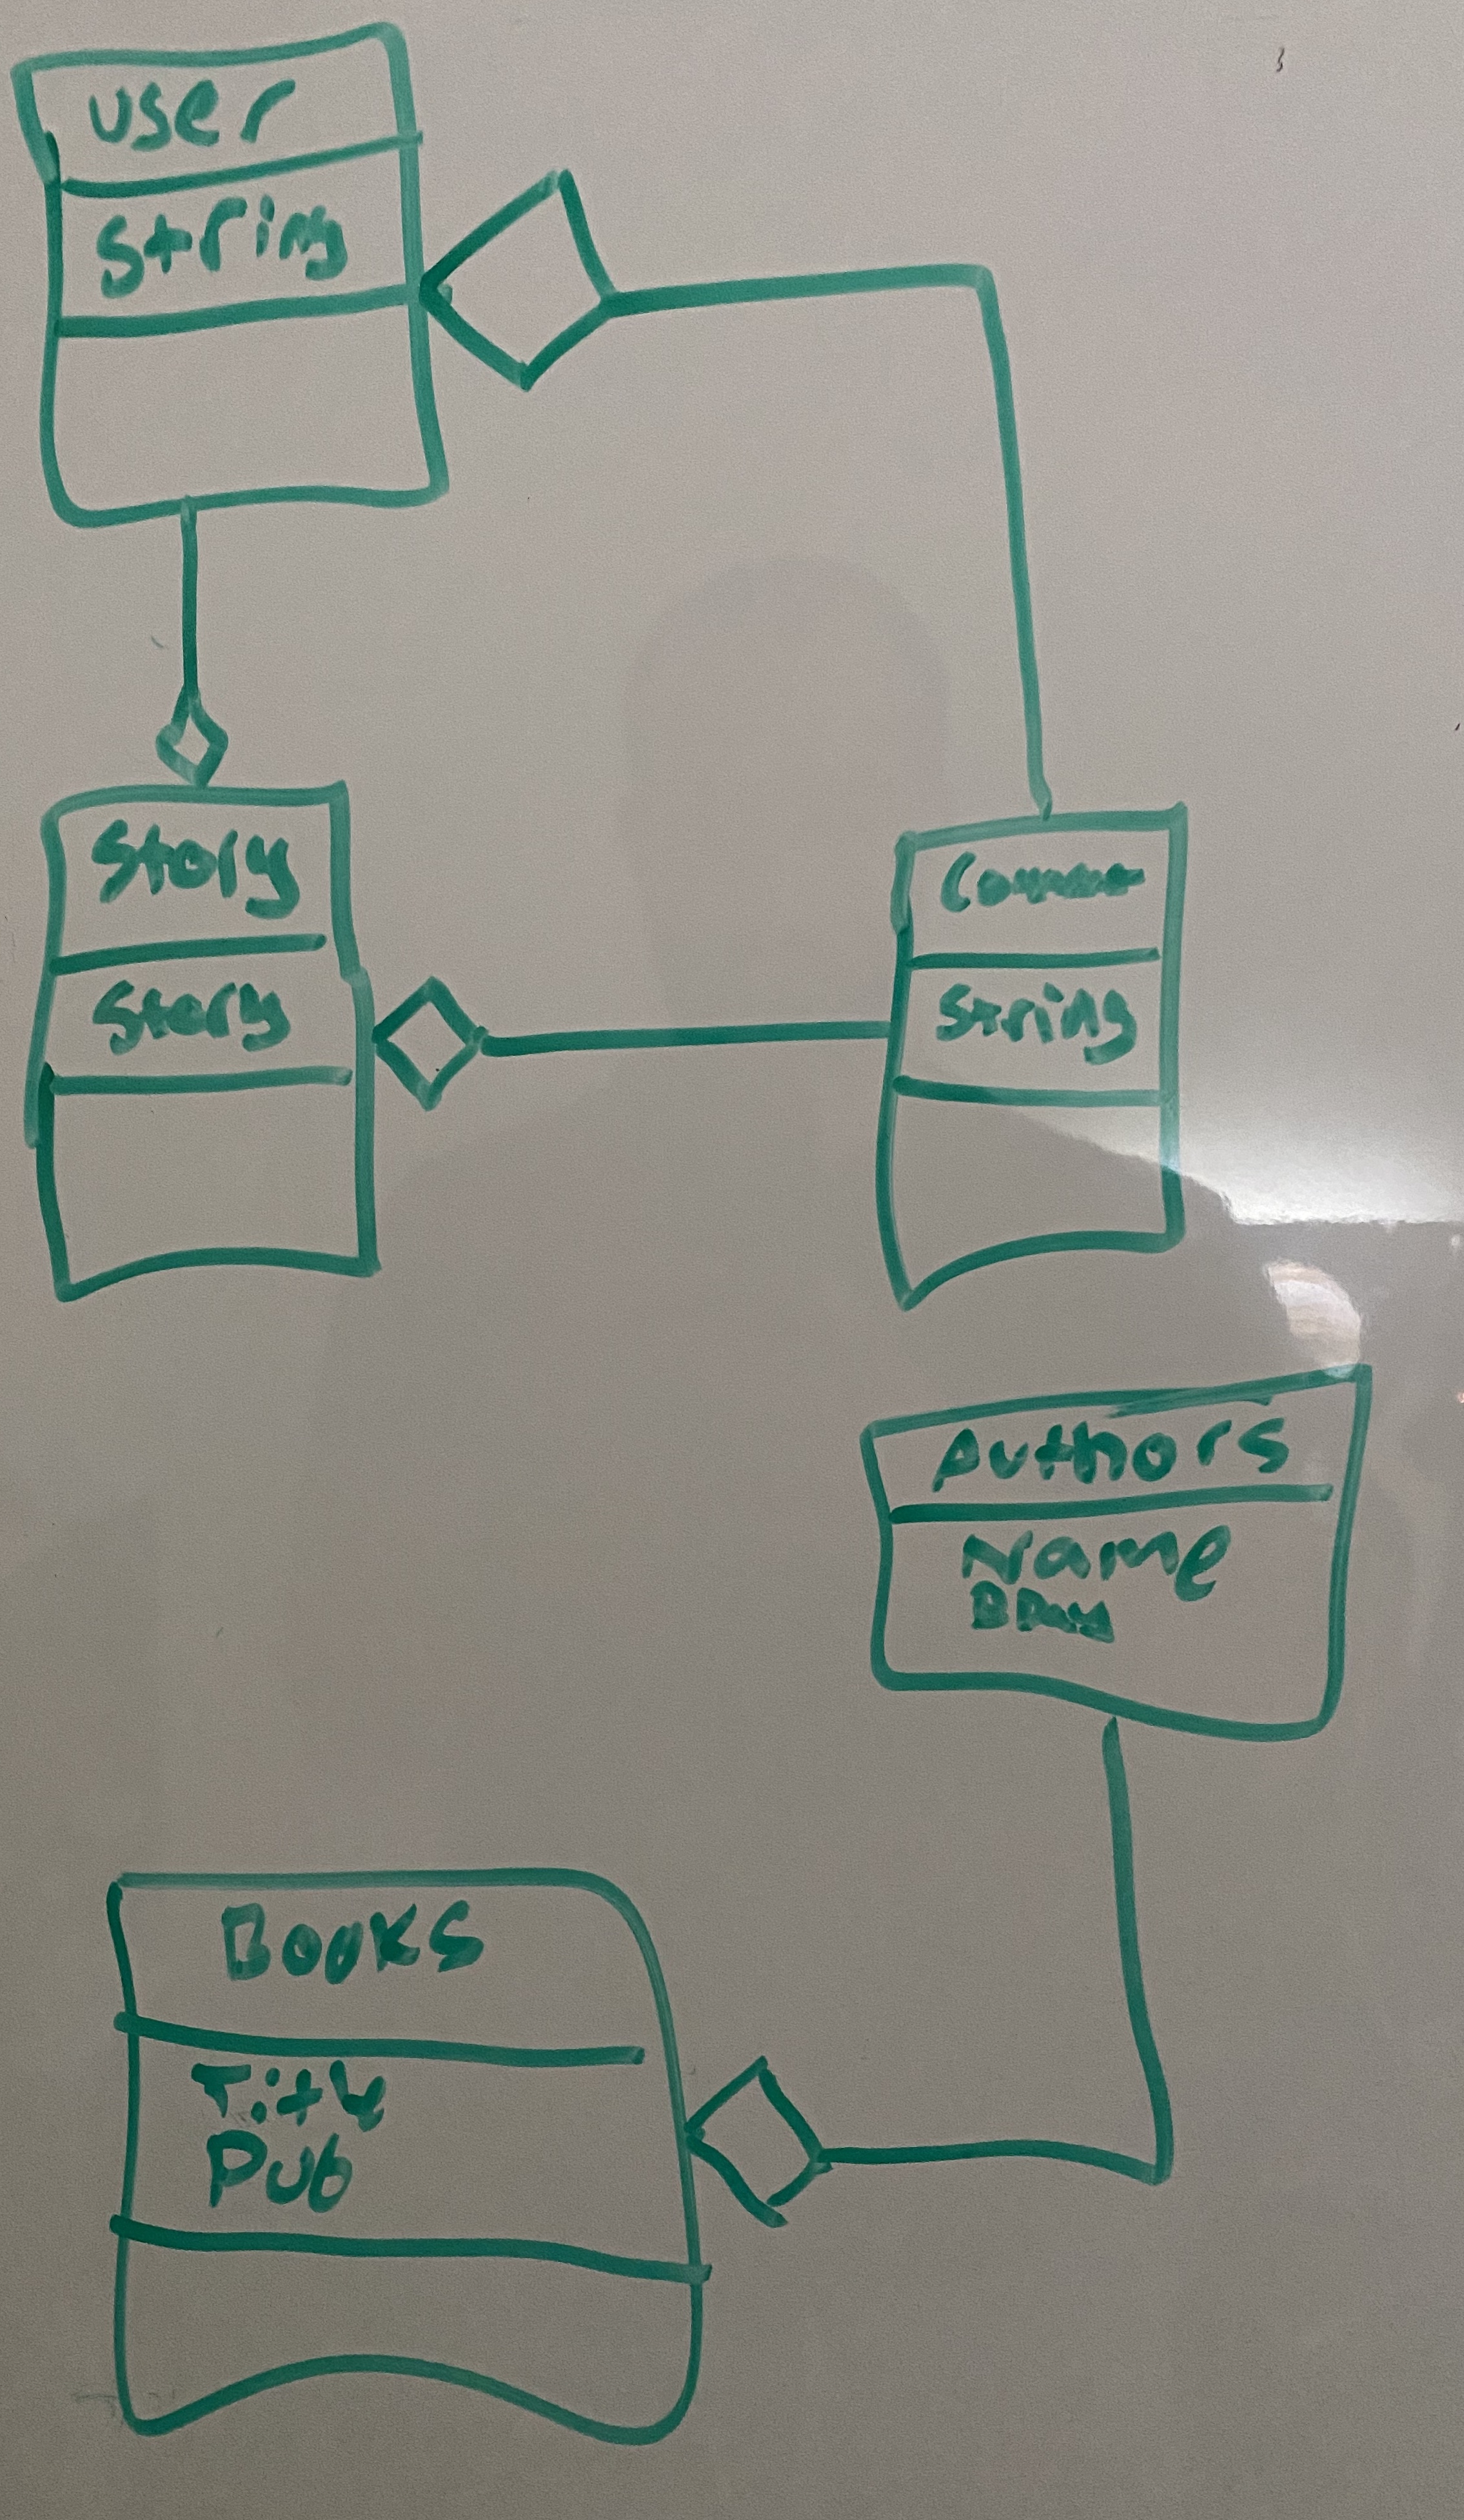 user
String
Story
Story
String
Authors
Name
BDay
Books
Title
Pub